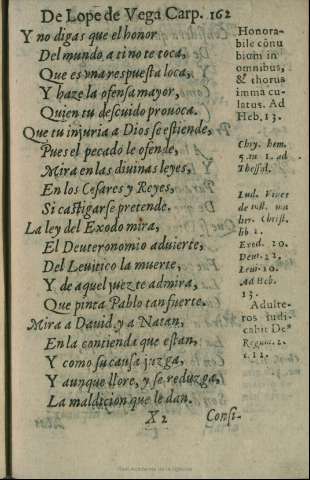 De Lope de Vega Carp. 162
Y no digas que el honor
Del mundo a ti no te toca,
Que es vna respuesta loca,
Y haze la ofensa mayor,
Quien tu descuido prouoca.
Que tu injuria a Dios se estiende,
Pues el pecado le ofende,
Mira en las diuinas leyes,
En los Cesares y Reyes,
Si castigarse pretende.
La ley del Exodo mira,
El Deuteronomio aduierte,
Del Leuitico la muerte,
Y de aquel juez te admira,
Que pinta Pablo tan fuerte.
Mira a Dauid y a Natan,
En la contienda que estan,
Y como su causa juzga,
Y aunque llore, y se reduzga,
La maldicion que le dan.
X2 Consi-
Honora-
bile cōnu
bium in
omnibus,
& thorus
imma cu-
latus. Ad
Heb. 13.
Chry. hom.
5. in 1. ad
Thessal.
Lud. Viues
de inst. mu
her. Christ.
lib 2.
Exod. 20.
Deut. 22,
Leui. 20.
Ad Heb.
13.
Adulte-
ros iudi-
cabit De⁹
Regum. 2.
c. 12.
Real Academia de la Historia